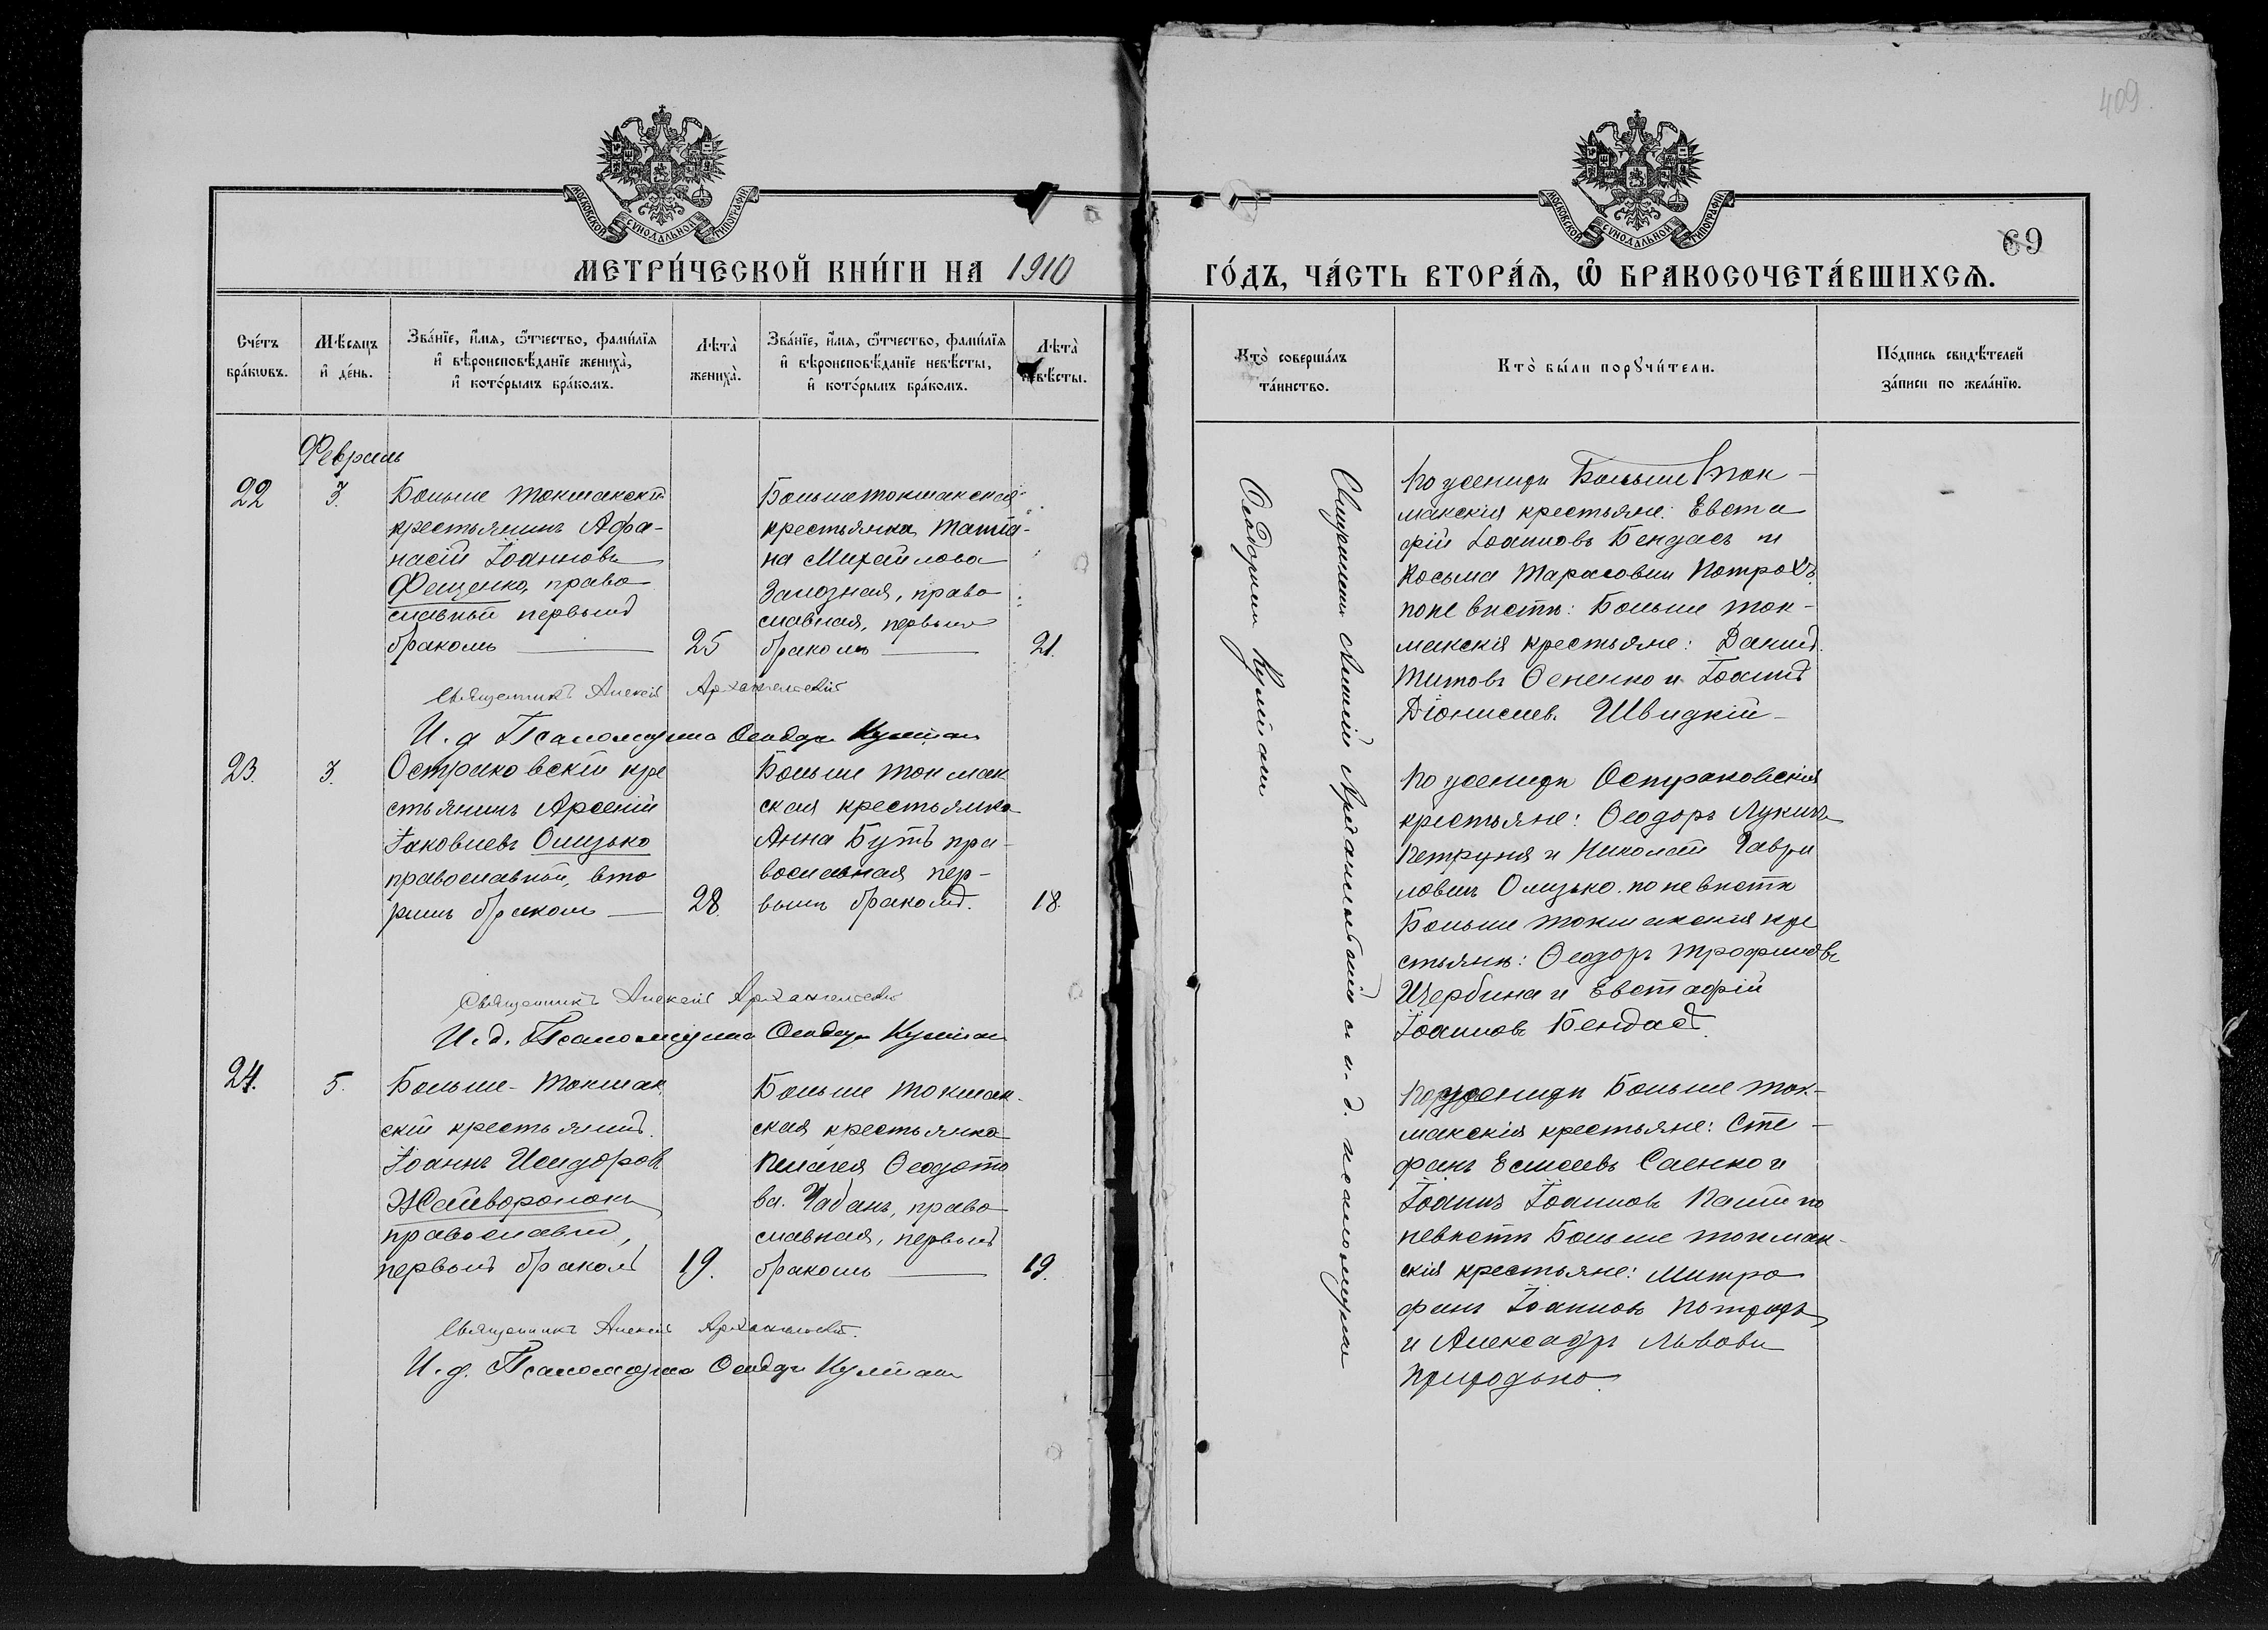 409
МОСКОВСКОЙ СѴНОДАЛЬНОЙ ТИПОГРАФІИ
МОСКОВСКОЙ СѴНОДАЛЬНОЙ ТИПОГРАФІИ
69
МЕТРИ́ЧЕСКОЙ КНИ́ГИ НА 1910
ГО́ДЪ, ЧА́СТЬ ВТОРА́Ѧ, Ѽ БРАКОСОЧЕТА́ВШИХСѦ.
Сче́тъ
бра́кѡвъ.
Мѣ́сяцъ
и҆ де́нь.
Зва́нїе, и҆́мя, ѻ҆́тчество, фами́лїя
и҆ вѣроисповѣ́данїе жениха̀,
и҆ кото́рымъ бра́комъ.
Лѣта̀
жениха̀.
Зва́нїе, и҆́мя, ѻ҆́тчество, фами́лїя
и҆ вѣроисповѣ́данїе невѣ́сты,
и҆ кото́рымъ бра́комъ.
Лѣта̀
невѣ́сты.
Кто̀ соверша́лъ
та́инство.
Кто̀ бы́ли порꙋчи́тели.
По́дпись свидѣ́телей
за́писи по жела́нїю.
Февраль
22
3.
Больше Токмакскій
крестьянинъ Афа-
насій Іоанновъ
Фещенко, право
славный первымъ
бракомъ
25
Больше токмакская
крестьянка Татіа-
на Михайлова
Залозная, право
славная, первымъ
бракомъ
21.
Священникъ Алексій Архангельскій
И. д. Псаломщика Ѳеодоръ
23.
3.
Остриковскій кре
стьянинъ Арсеній
Іаковлевъ Олизько
православный, вто
рымъ бракомъ
28.
Больше Токмак
ская крестьянка
Анна Бутъ пра-
вославная пер-
вымъ бракомъ.
18.
Священникъ Алексій Архангельскій
И. д. Псаломщика Ѳеодоръ
24.
5.
Больше-Токмак
скій крестьянинъ
Іоаннъ Исидоров
Жайворонокъ
православный,
первымъ бракомъ
19.
Больше Токмак-
ская крестьянка
Пелагея Ѳеодото
ва Чабанъ, право
славная, первымъ
бракомъ
19.
Священникъ Алексій Архангельскій.
И. д. Псаломщика Ѳеодоръ
Священникъ Алексій Архангельскій и и. д. псаломщика
Ѳеодоръ
По женихѣ Больше Ток-
макскія крестьяне: Евста
фій Іоанновъ Бендасъ и
Косьма Тарасовъ
по невѣстѣ: Больше Ток-
макскія крестьяне: Даніилъ
Титовъ и Іоаннъ
Діонисіев. Швидкій
По женихѣ Остриковскія
крестьяне: Ѳеодоръ Лукинъ
Петруня и Николай Гаври
ловъ Олизько. по невѣстѣ
Больше Токмакскія кре
стьяне: Ѳеодоръ Трофимовъ
Щербина и Евстафій
Іоанновъ Бендасъ.
По женихѣ Больше Ток-
макскія крестьяне: Сте-
фанъ Елисеевъ Саенко и
Іоаннъ Іоанновъ по
невѣстѣ Больше Токмак-
скія крестьяне: Митро
фанъ Іоанновъ
и Александръ Львовъ
Природько.